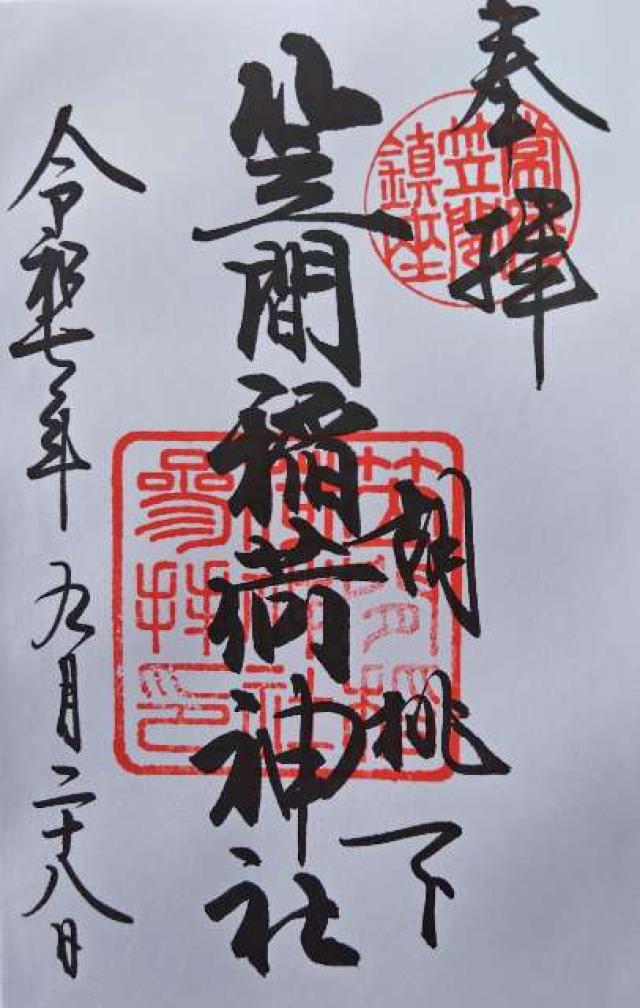 奉拝
常陸
笠間
鎮座
胡桃下
笠間稲荷神社
笠間稲
荷神社
参拝之印
令和七年九月二十八日